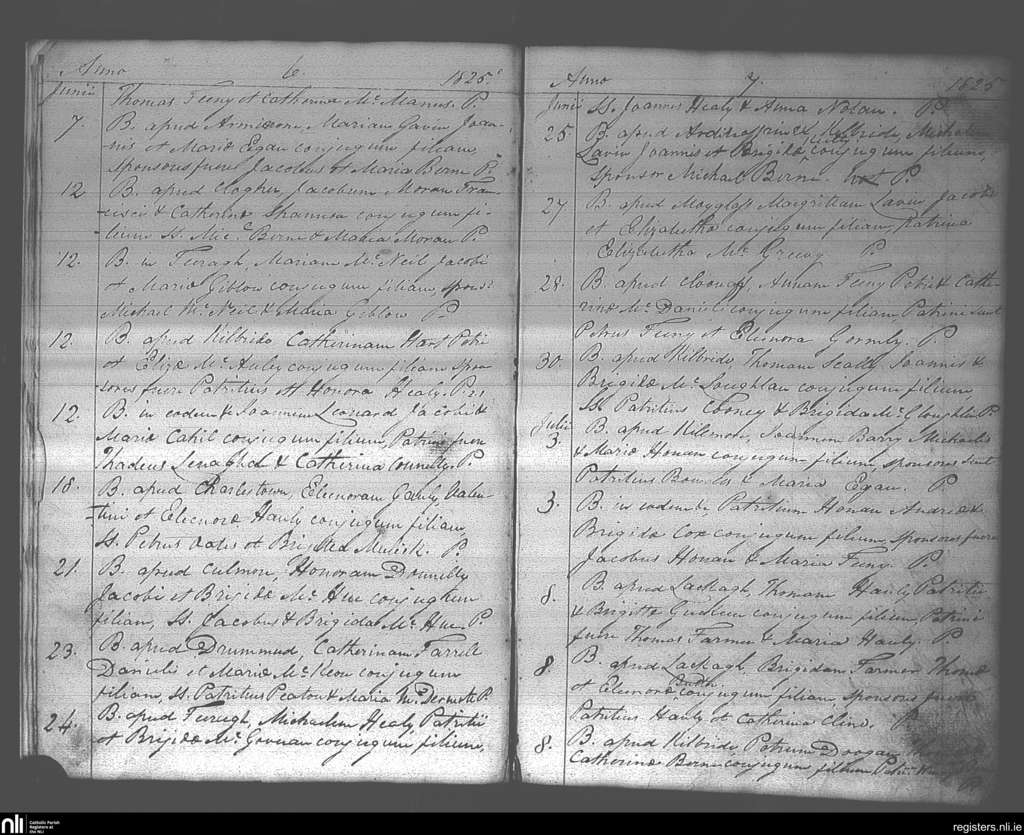 Anno 6. 1825.
Junii Thomas Feeny et Catherina Mc Manus. P.
7. B. apud Armison, Mariam Gavin Joan-
nis et Mariæ Egan conjugum filiam,
sponsores fuere Jacobus et Maria Beirne P.
12 B. apud Clogher, Jacobum Moran Fran-
cisci & Catherinæ Shannon conjugum fi-
lium Ss. Mic. Berne & Maria Moran P.
12. B. in Furagh, Mariam Mc Neil Jacobi
et Mariæ Giblow conjugum filiam, spons
Michael Mc Neil & Maria Giblow P.
12. B. apud Kilbride Catherinam Hart Petri
et Elizæ Mc Auley conjugum filiam spon
sores fuere Patritius et Honora Healy. P.
12. B. in eodem & Joannem Leonard Jacobi &
Mariæ Cahil conjugum filium, Patrini fuere
Thadeus Lenaghd & Catherina Connelly. P.
18. B. apud Charlestown, Eleonoram Gauly Valen-
tini et Eleonoræ Hauly conjugum filiam
Ss. Petrus Oates et Brigitta Mulick. P.
21. B. apud Culmore, Honoram Donnelly
Jacobi et Brigidæ Mc Hue conjugum
filiam, Ss. Jacobus & Brigida Mc Hue P.
23. B. apud Drummud, Catherinam Farrell
Danielis et Mariæ Mc Keon conjugum
filiam, Ss. Patritius Peaton & Maria Mc Dermott P.
24. B. apud Furugh, Michaelem Healy, Patritii
et Brigidæ Mc Gowan conjugum filium,
Anno 7. 1825
Junii Ss. Joannes Healy & Anna Nolan. P.
25 B. apud Kilbride Michalem
Lavin Joannis et Brigidæ Lilly conjugum filium,
Sponsor Michael Birne. P.
27 B. apud Moyglass Margrittam Lavin Jacobi
et Elizabetha conjugum filiam, Patrina
Elizabetha Mc Greevy P.
28. B. apud Cloonaff, Annam Feeny Petri & Cathe-
rinæ Mc Daniel conjugum filiam, Patrini sunt
Petrus Feeny et Eleonora Gormly. P.
30. B. apud Kilbride, Thomam Scally, Joannis &
Brigidæ Mc Loughlan conjugum filium,
Ss. Patritius Cooney & Brigida Mc Gloughlin P.
Julii
3. B. apud Kilmore, Joannem Barry Michaelis
& Mariæ Honan conjugum filium, sponsores sunt
Patritius Bowles & Maria Egan. P.
3. B. in eodem & Patritium Honan Andreæ &
Brigidæ Cox conjugum filium, sponsores fuere
Jacobus Honan & Maria Feeny. P.
8. B. apud Lackagh, Thomam Hauly Patritii
& Brigitta conjugum filium Patrini
fuere Thomas Farmer & Maria Hauly. P
8 B. apud Lackagh, Brigidam Farmer Thomæ
et Eleonoræ conjugum filiam, sponsores fuere
Patritius Hauly et Catherina Cline. P.
8. B. apud Kilbride, Patrum Doogan
Catherinæ Berne conjugum filium
nli
Catholic Parish
Registers at
the NLI
registers.nli.ie